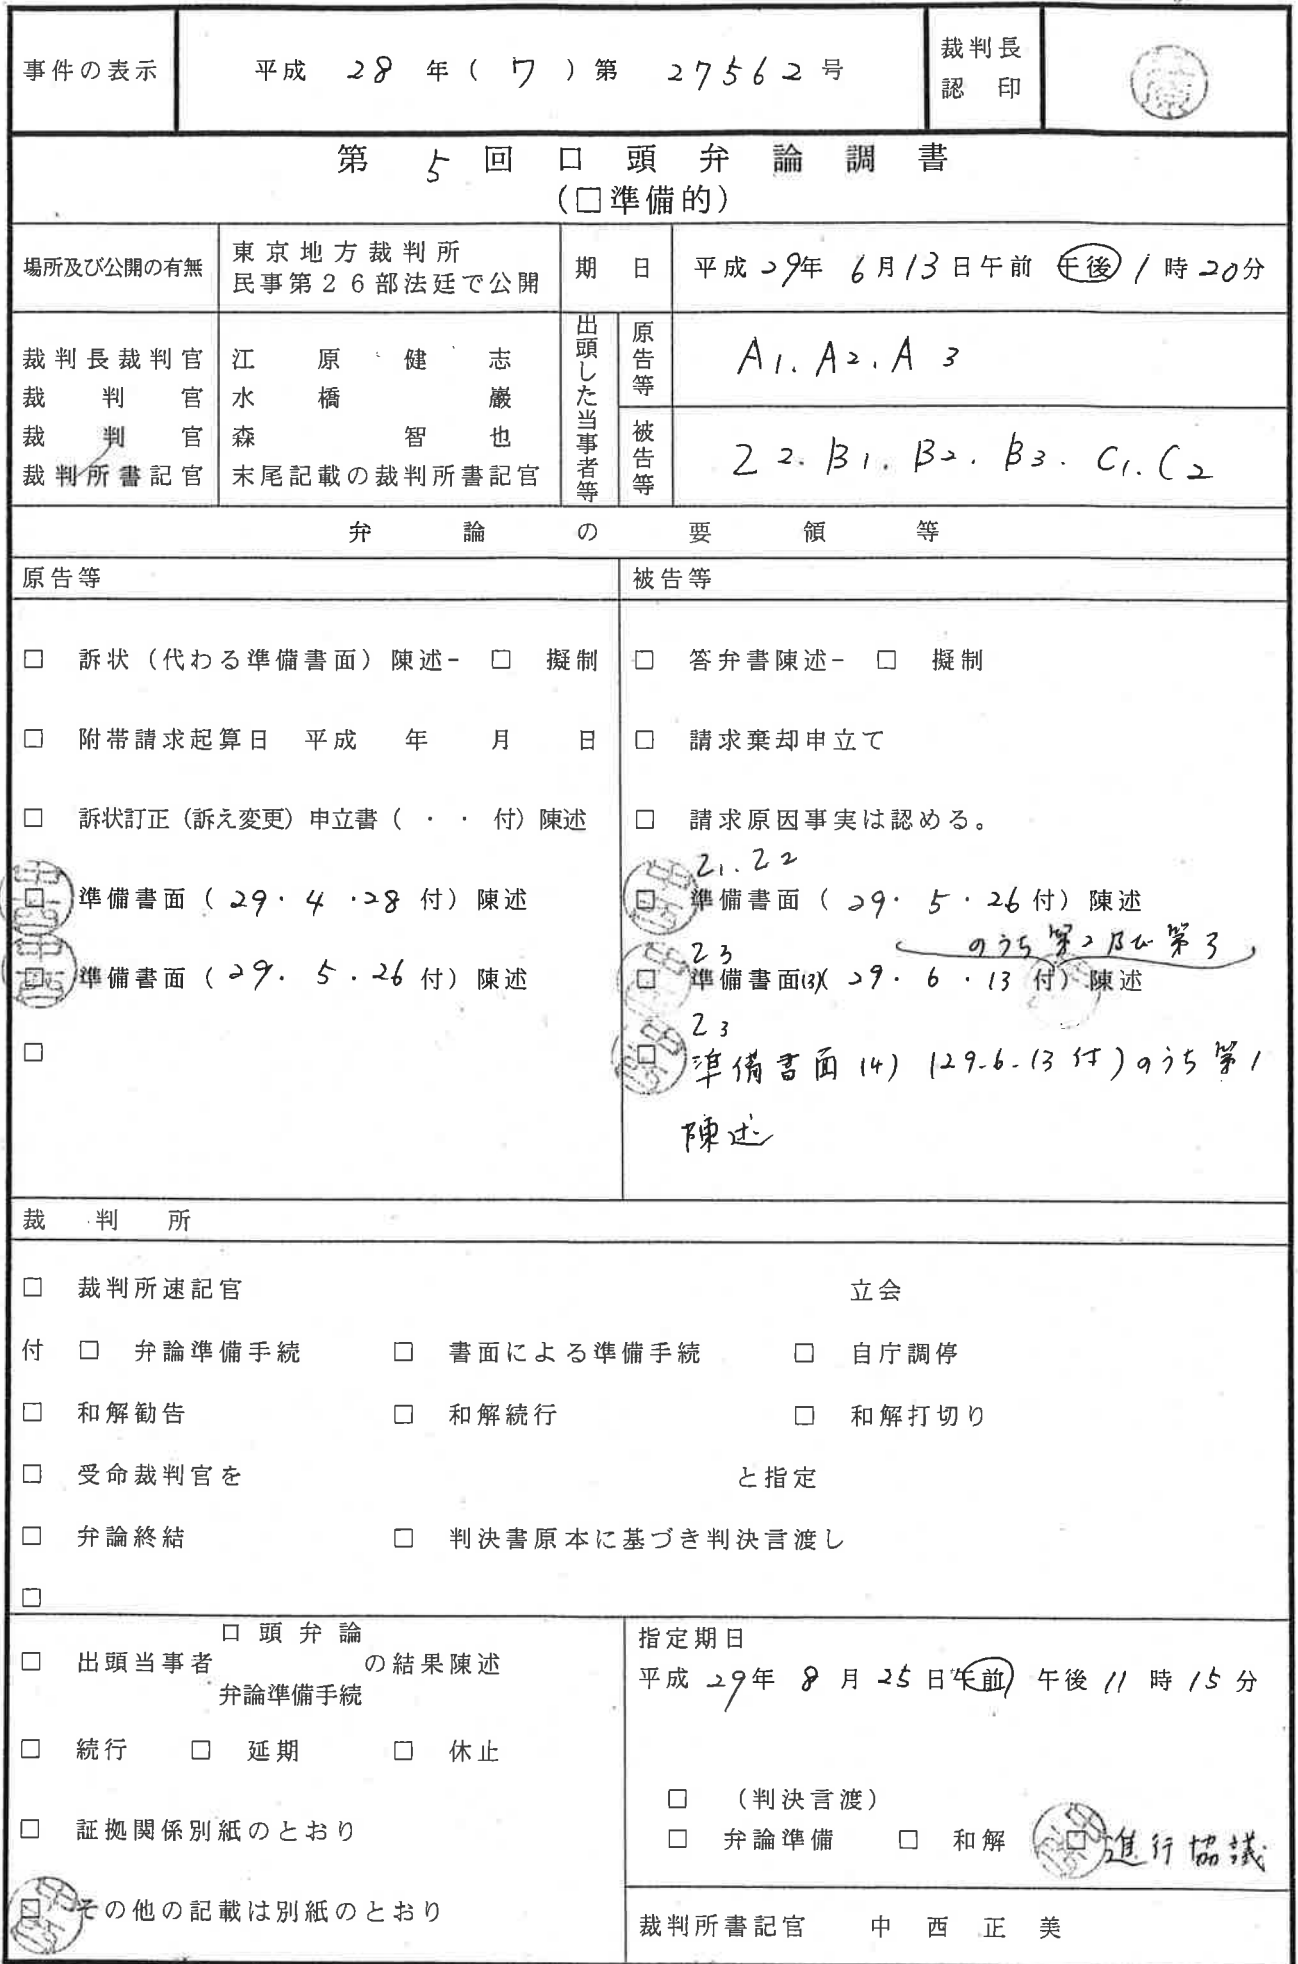 事件の表示 平成 28 年 ( ワ ) 第 27562 号 裁判長認印
第 5 回 口 頭 弁 論 調 書
(□準備的)
場所及び公開の有無 東京地方裁判所
民事第26部法廷で公開
期日 平成 29年 6月13日午前 午後 1時20分
裁判長裁判官 江原健志
裁判官 水橋巖
裁判官 森智也
裁判所書記官 末尾記載の裁判所書記官
出頭した当事者等
原告等 A1. A2. A3
被告等 Z2. B1. B2. B3. C1. C2
弁論の要領等
原告等
□ 訴状(代わる準備書面)陳述- □ 擬制
□ 附帯請求起算日 平成 年 月 日
□ 訴状訂正(訴え変更)申立書( ・ ・ 付)陳述
□ 準備書面(29・4・28付)陳述
□ 準備書面(29・5・26付)陳述
□
被告等
□ 答弁書陳述- □ 擬制
□ 請求棄却申立て
□ 請求原因事実は認める。
Z1. Z2
□ 準備書面(29・5・26付)陳述
のうち第2及び第3
Z3
□ 準備書面(3)(29・6・13付)陳述
Z3
□ 準備書面(4)(29.6.13付)のうち第1
陳述
裁判所
□ 裁判所速記官 立会
付 □ 弁論準備手続 □ 書面による準備手続 □ 自庁調停
□ 和解勧告 □ 和解続行 □ 和解打切り
□ 受命裁判官を と指定
□ 弁論終結 □ 判決書原本に基づき判決言渡し
□
口頭弁論
□ 出頭当事者 の結果陳述
弁論準備手続
□ 続行 □ 延期 □ 休止
□ 証拠関係別紙のとおり
□ その他の記載は別紙のとおり
指定期日
平成 29年 8月 25日午前 午後 11時 15分
□ (判決言渡)
□ 弁論準備 □ 和解 □ 進行協議
裁判所書記官 中西正美